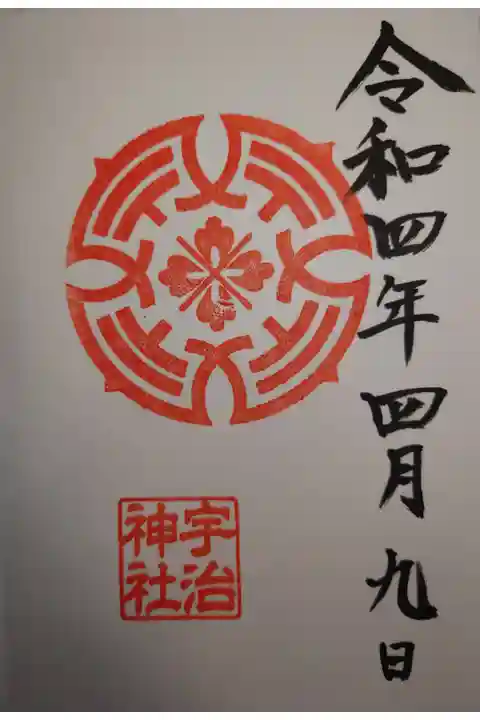 令和四年四月九日
宇治
神社